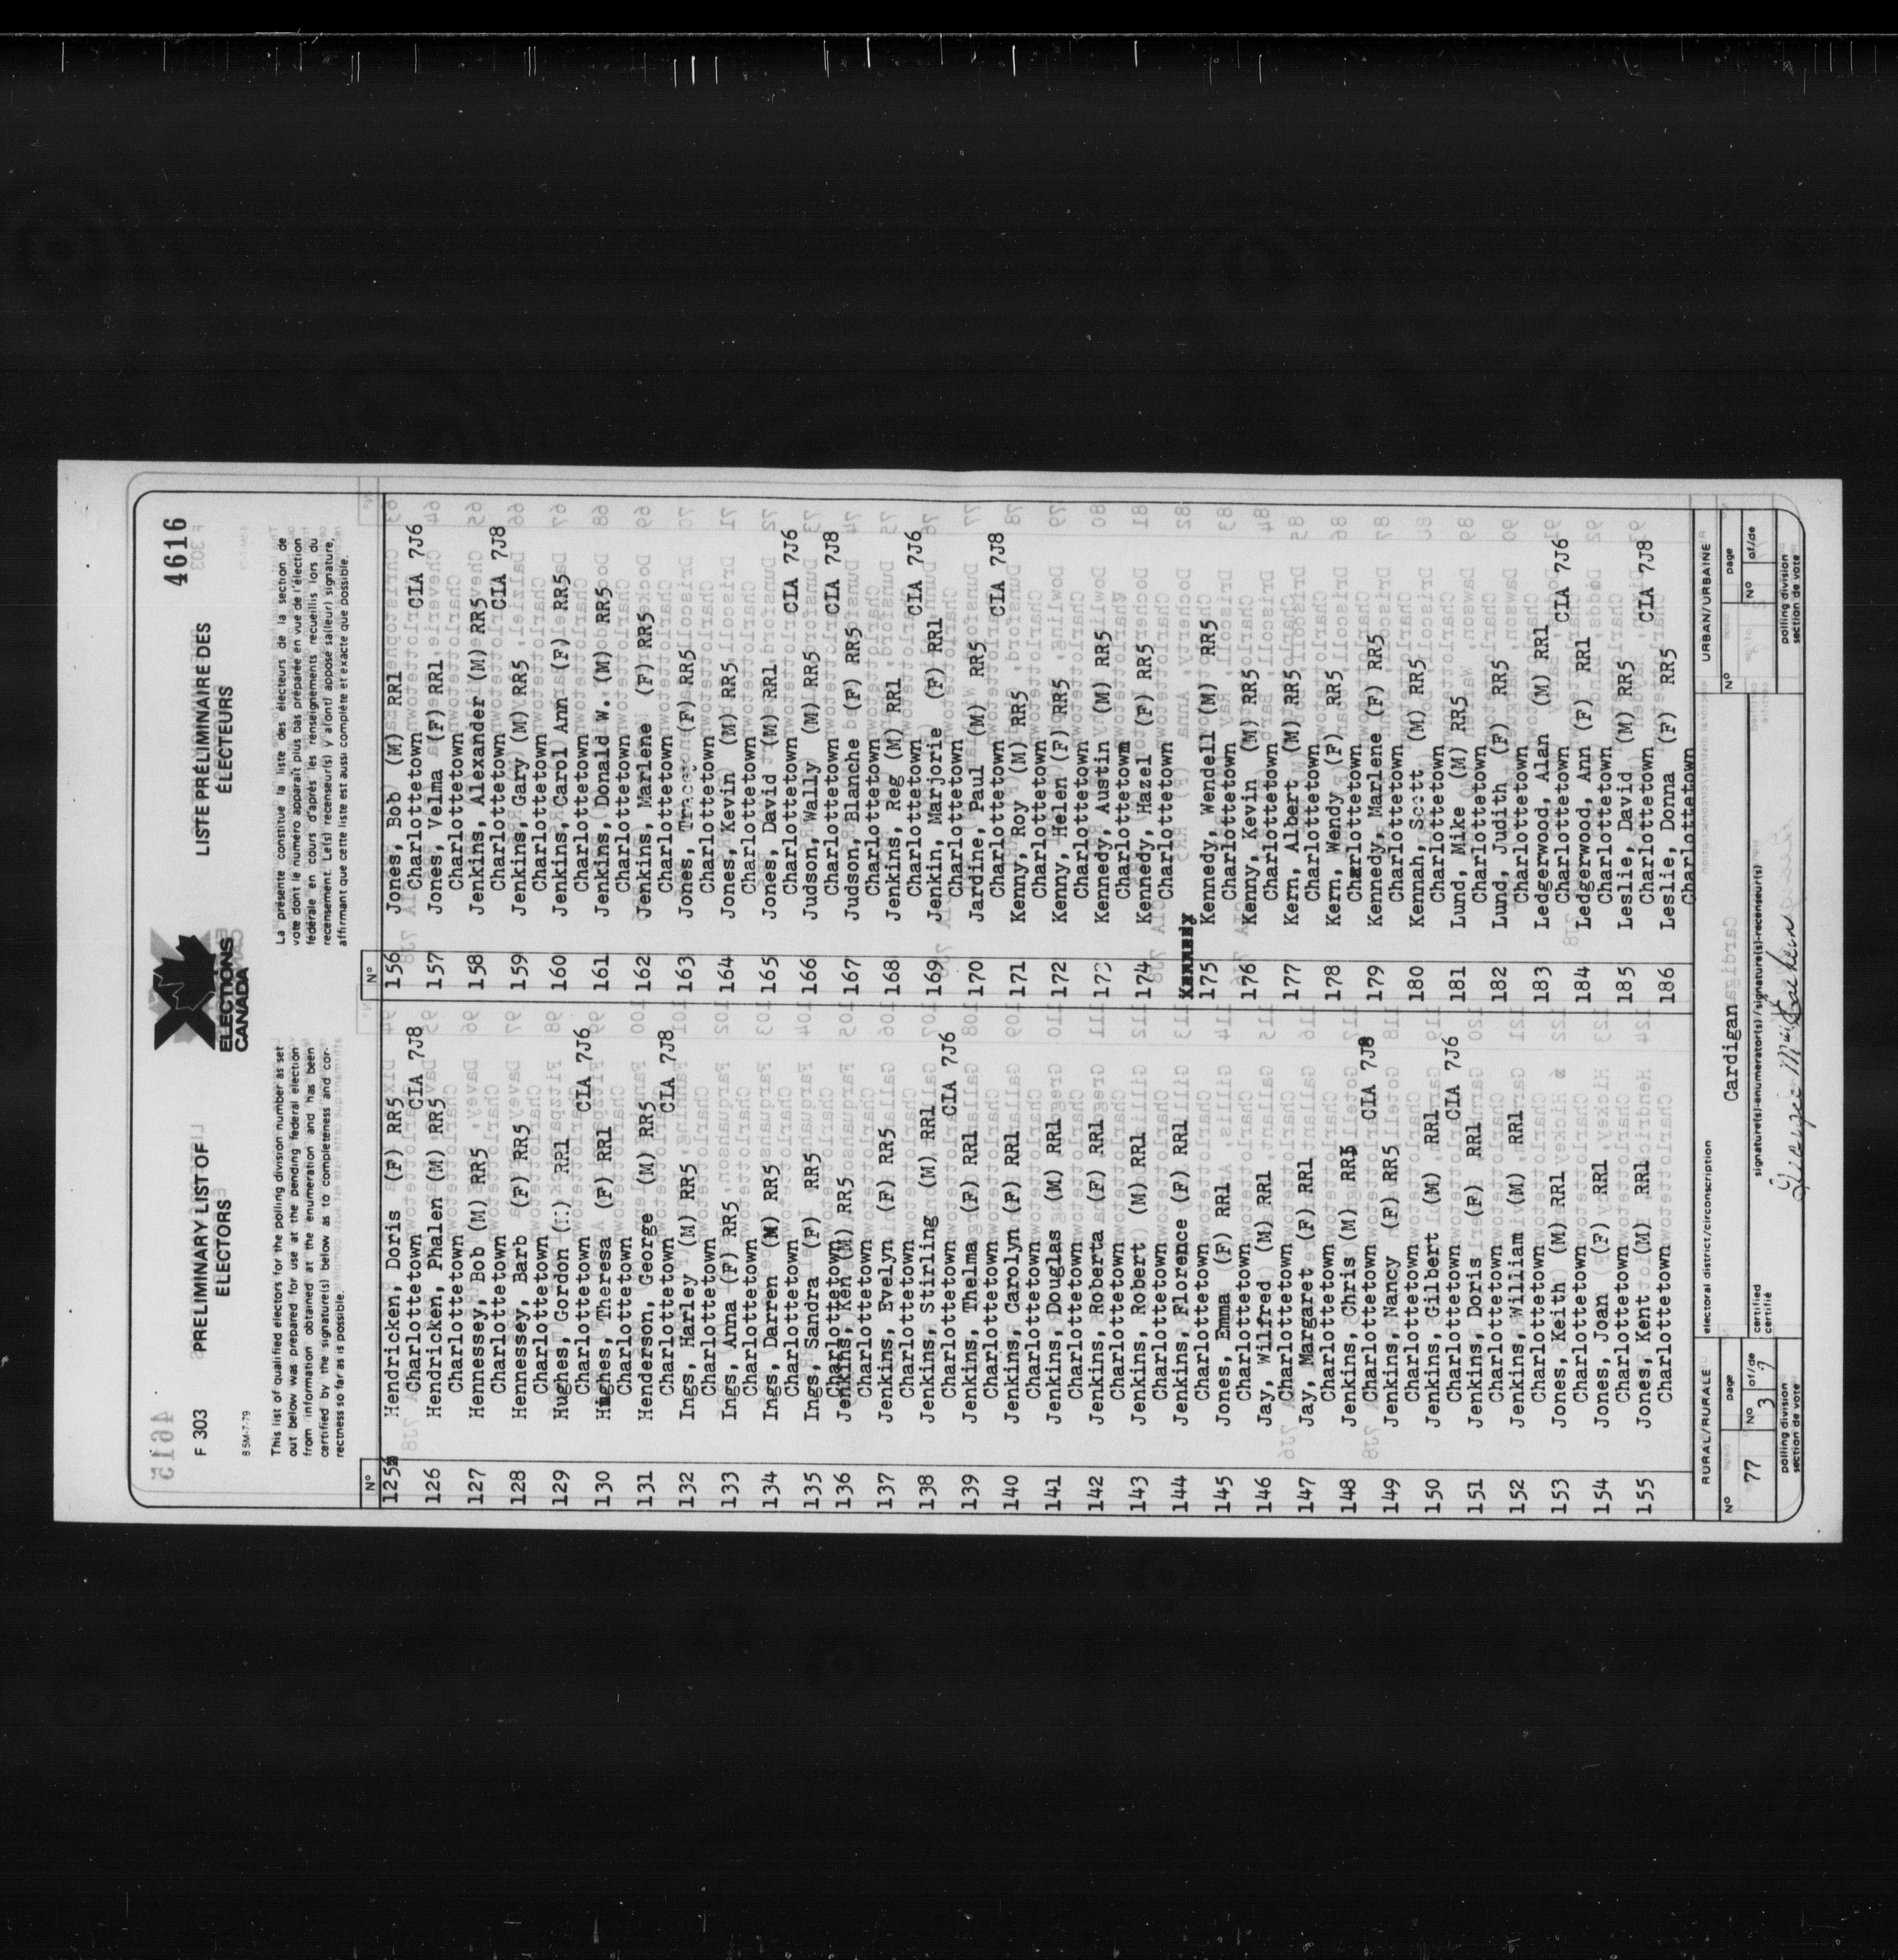 4616
F 303
8 5M-7-79
PRELIMINARY LIST OF
ELECTORS
ELECTIONS
CANADA
LISTE PRÉLIMINAIRE DES
ÉLECTEURS
This list of qualified electors for the polling division number as set
out below was prepared for use at the pending federal election
from information obtained at the enumeration and has been
certified by the signature(s) below as to completeness and cor-
rectness so far as is possible.
La présente constitue la liste des électeurs de la section de
vote dont le numéro apparaît plus bas préparée en vue de l'élection
fédérale en cours d'après les renseignements recueillis lors du
recensement. Le(s) recenseur(s) y a(ont) apposé sa(leur) signature,
affirmant que cette liste est aussi complète et exacte que possible.
Nº
125 Hendricken, Doris (F) RR5
Charlottetown CIA 7J8
126 Hendricken, Phalen (M) RR5
Charlottetown
127 Hennessey, Bob (M) RR5
Charlottetown
128 Hennessey, Barb (F) RR5
Charlottetown
129 Hughes, Gordon RR1
Charlottetown CIA 7J6
130 Hughes, Theresa (F) RR1
Charlottetown
131 Henderson, George (M) RR5
Charlottetown CIA 7J8
132 Ings, Harley (M) RR5
Charlottetown
133 Ings, Anna (F) RR5
Charlottetown
134 Ings, Darren (M) RR5
Charlottetown
135 Ings, Sandra (F) RR5
Charlottetown
136 Jenkins, Ken (M) RR5
Charlottetown
137 Jenkins, Evelyn (F) RR5
Charlottetown
138 Jenkins, Stirling (M) RR1
Charlottetown CIA 7J6
139 Jenkins, Thelma (F) RR1
Charlottetown
140 Jenkins, Carolyn (F) RR1
Charlottetown
141 Jenkins, Douglas (M) RR1
Charlottetown
142 Jenkins, Roberta (F) RR1
Charlottetown
143 Jenkins, Robert (M) RR1
Charlottetown
144 Jenkins, Florence (F) RR1
Charlottetown
145 Jones, Emma (F) RR1
Charlottetown
146 Jay, Wilfred (M) RR1
Charlottetown
147 Jay, Margaret (F) RR1
Charlottetown
148 Jenkins, Chris (M) RR5
Charlottetown CIA 7J8
149 Jenkins, Nancy (F) RR5
Charlottetown
150 Jenkins, Gilbert (M) RR1
Charlottetown CIA 7J6
151 Jenkins, Doris (F) RR1
Charlottetown
152 Jenkins, William (M) RR1
Charlottetown
153 Jones, Keith (M) RR1
Charlottetown
154 Jones, Joan (F) RR1
Charlottetown
155 Jones, Kent (M) RR1
Charlottetown
Nº
156 Jones, Bob (M) RR1
Charlottetown CIA 7J6
157 Jones, Velma (F) RR1
Charlottetown
158 Jenkins, Alexander (M) RR5
Charlottetown CIA 7J8
159 Jenkins, Gary (M) RR5
Charlottetown
160 Jenkins, Carol Ann (F) RR5
Charlottetown
161 Jenkins, Donald W. (M) RR5
Charlottetown
162 Jenkins, Marlene (F) RR5
Charlottetown
163 Jones, (F) RR5
Charlottetown
164 Jones, Kevin (M) RR5
Charlottetown
165 Jones, David (M) RR1
Charlottetown CIA 7J6
166 Judson, Wally (M) RR5
Charlottetown CIA 7J8
167 Judson, Blanche (F) RR5
Charlottetown
168 Jenkins, Reg (M) RR1
Charlottetown CIA 7J6
169 Jenkin, Marjorie (F) RR1
Charlottetown
170 Jardine, Paul (M) RR5
Charlottetown CIA 7J8
171 Kenny, Roy (M) RR5
Charlottetown
172 Kenny, Helen (F) RR5
Charlottetown
173 Kennedy, Austin (M) RR5
Charlottetown
174 Kennedy, Hazel (F) RR5
Charlottetown
175 Kennedy, Wendell (M) RR5
Charlottetown
176 Kenny, Kevin (M) RR5
Charlottetown
177 Kern, Albert (M) RR5
Charlottetown
178 Kern, Wendy (F) RR5
Charlottetown
179 Kennedy, Marlene (F) RR5
Charlottetown
180 Kennah, Scott (M) RR5
Charlottetown
181 Lund, Mike (M) RR5
Charlottetown
182 Lund, Judith (F) RR5
Charlottetown
183 Ledgerwood, Alan (M) RR1
Charlottetown CIA 7J6
184 Ledgerwood, Ann (F) RR1
Charlottetown
185 Leslie, David (M) RR5
Charlottetown CIA 7J8
186 Leslie, Donna (F) RR5
Charlottetown
RURAL/RURALE
electoral district/circonscription
Cardigan
URBAN/URBAINE
Nº 77
page
Nº 3 of/de 7
polling division
section de vote
certified
certifié
signature(s)-enumerator(s)/signature(s)-recenseur(s)
Nº
page
Nº of/de
polling division
section de vote